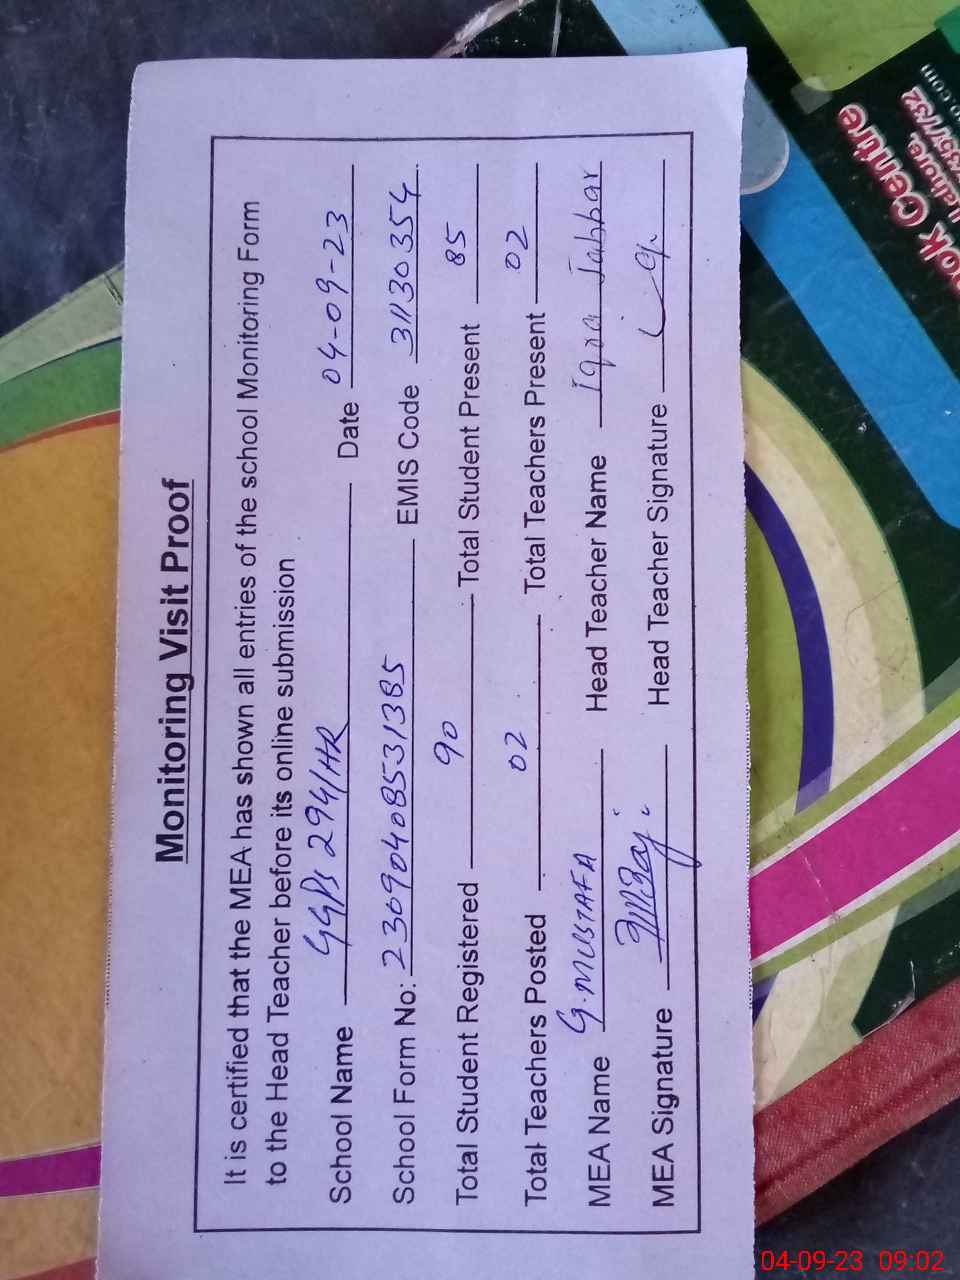 Monitoring Visit Proof
It is certified that the MEA has shown all entries of the school Monitoring Form
to the Head Teacher before its online submission
School Name GGPS 294/HR Date 04-09-23
School Form No: 2309040853138​5 EMIS Code 31130354
Total Student Registered 90 Total Student Present 85
Total Teachers Posted 02 Total Teachers Present 02
MEA Name G.MUSTAFA Head Teacher Name Iqra Jabbar
MEA Signature Head Teacher Signature
ook Centre
Lahore.
7357732
04-09-23 09:02